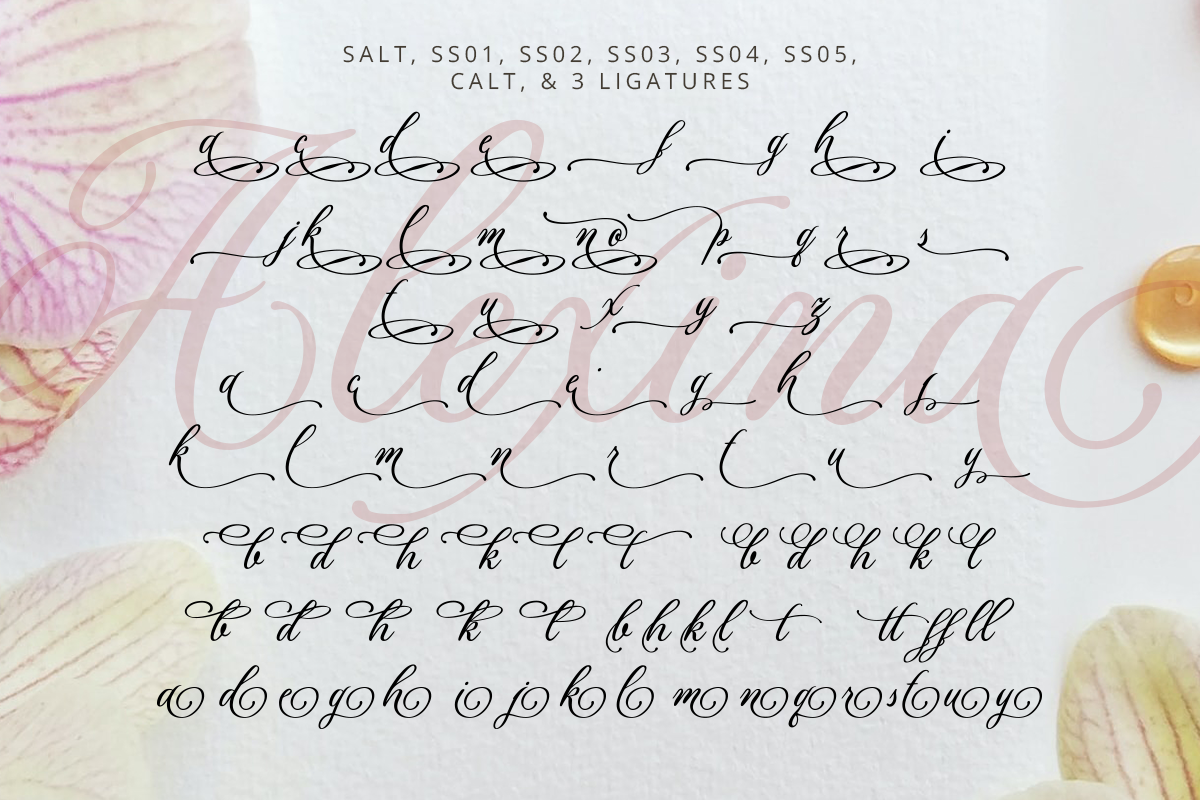 SALT, SS01, SS02, SS03, SS04, SS05,
CALT, & 3 LIGATURES
Alexina
a c d e f g h i
j k l m n o p q r s
t u x y z
a c d e i g h f
k l m n r t u y
b d h k l t b d h k l
b d h k t b h k l t tt ff ll
a d e g h i j k l m n q r s t u y